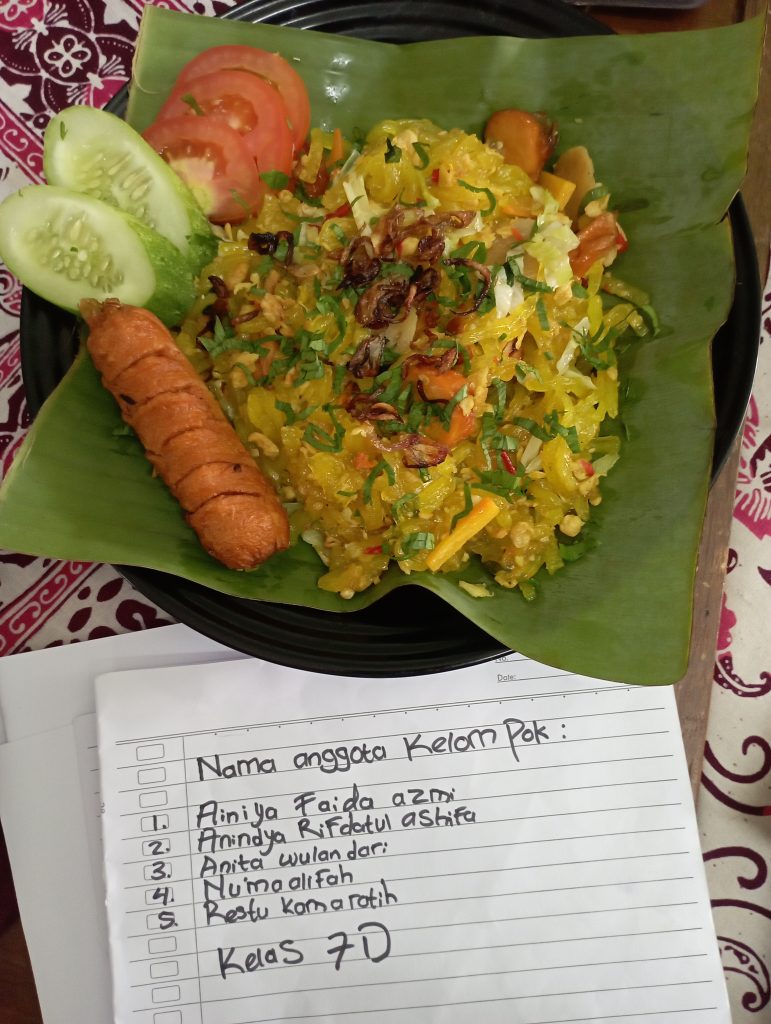 No:
Date:
Nama anggota Kelompok :
1. Ainiya Faida azmi
2. Anindya Rifdatul ashifa
3. Anita wulandari
4. Nuima alifah
5. Restu Kamaratih
Kelas 7D